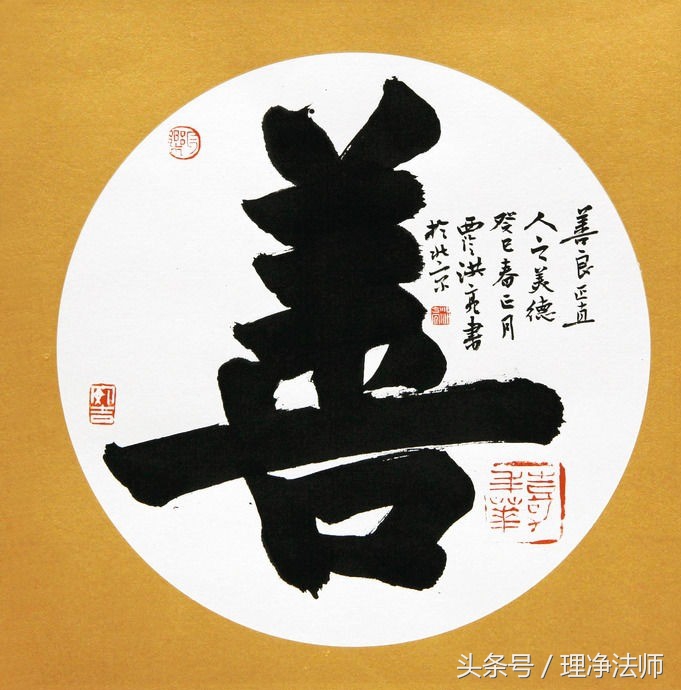 善
善良正直
人之美德
癸巳春正月
洪亮書
於北京
头条号／理净法师